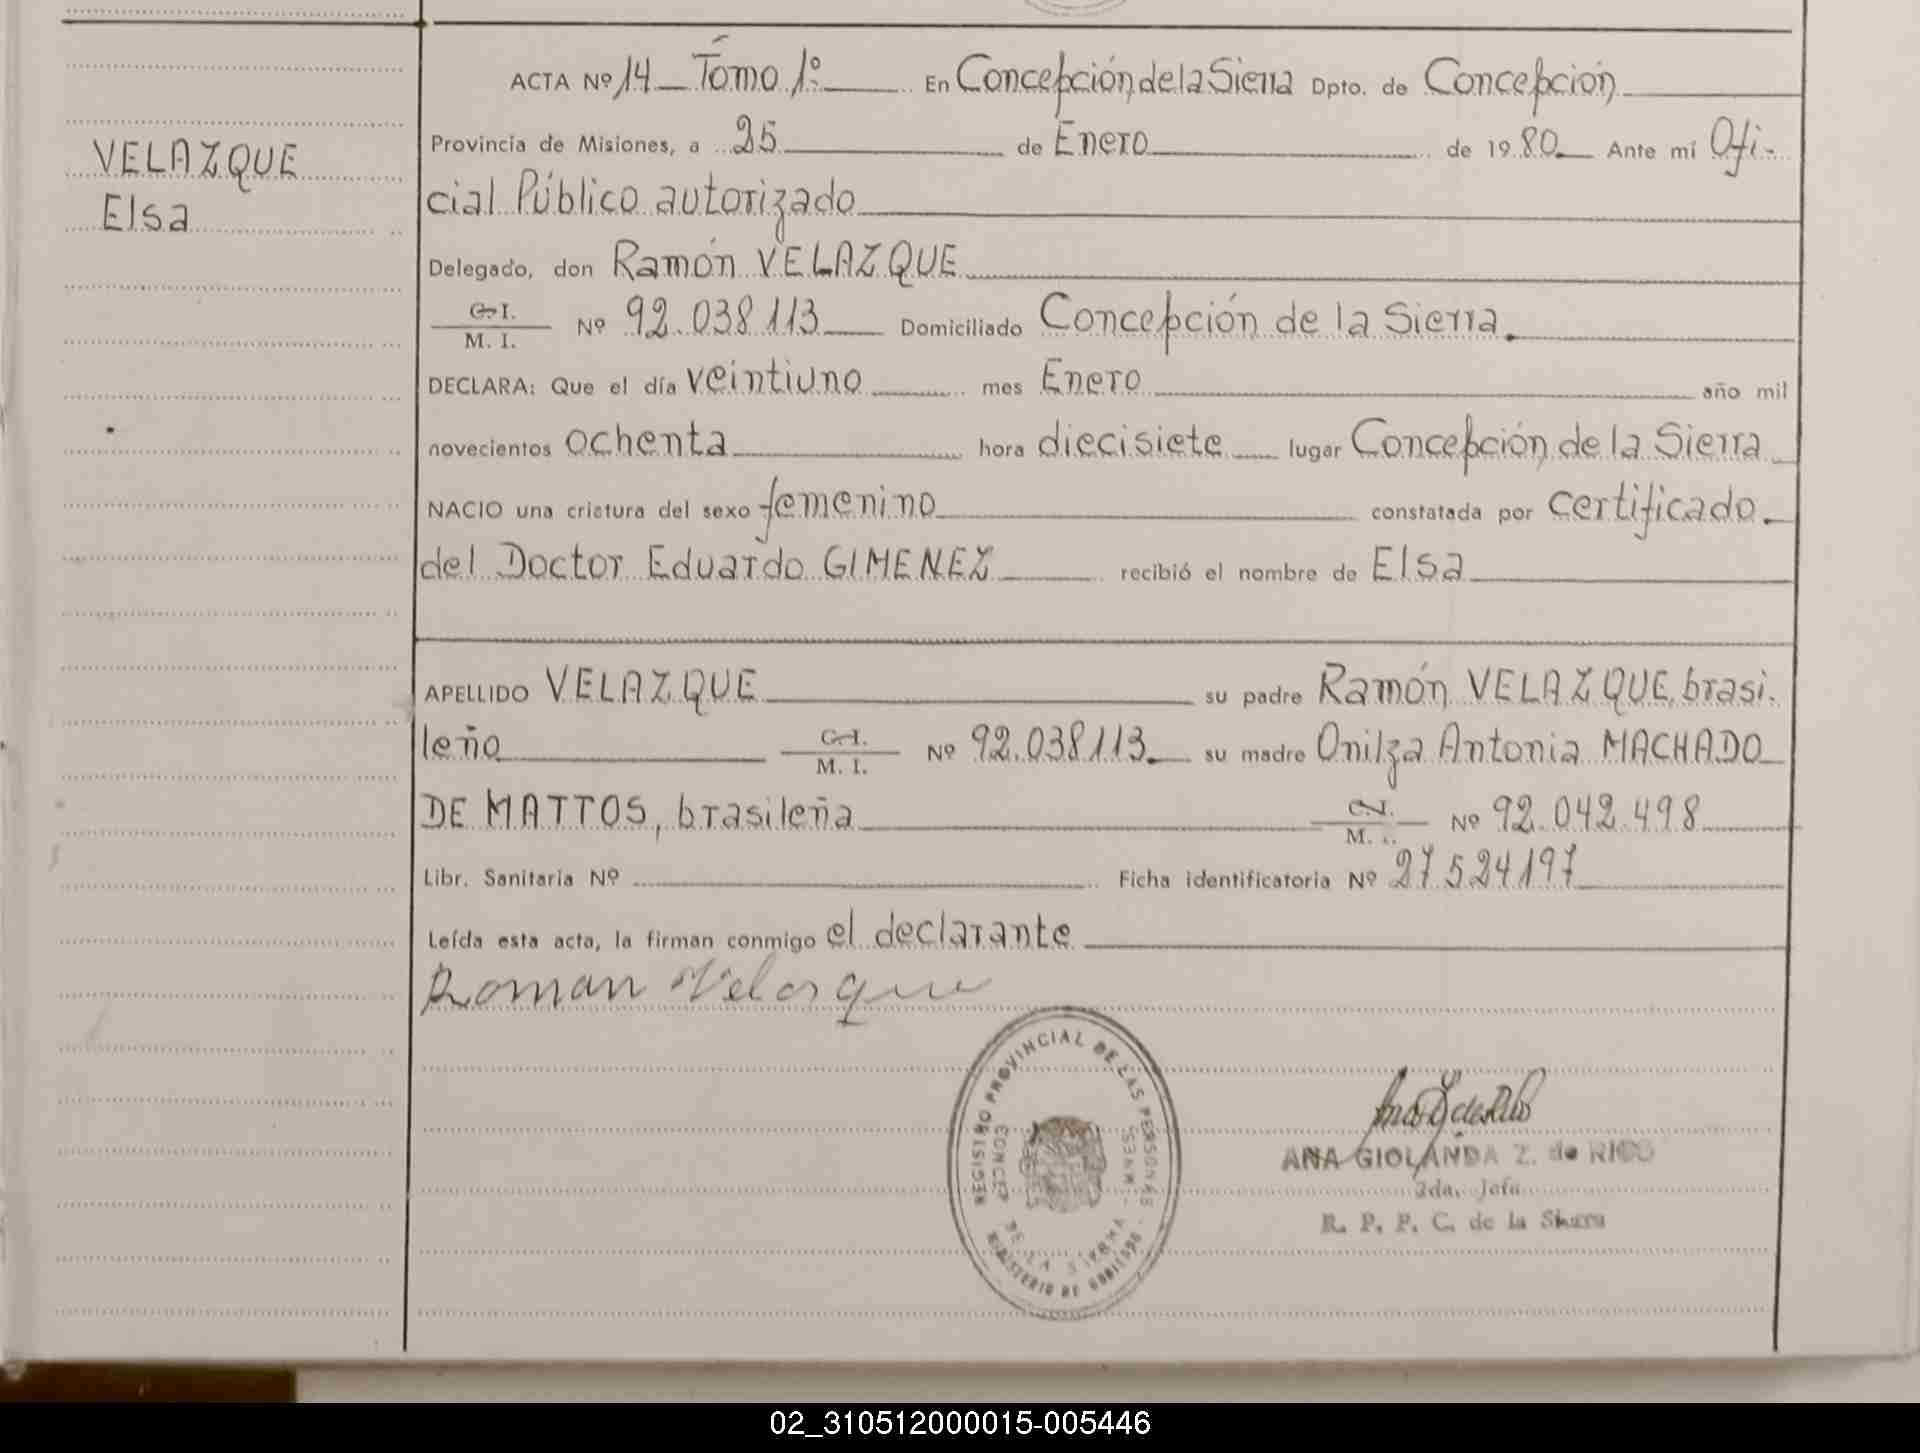 ACTA Nº 14 Tomo 1º En Concepción de la Sierra Dpto. de Concepción
Provincia de Misiones, a 25 de Enero de 1980 Ante mí Ofi-
VELAZQUE
cial Público autorizado
Elsa
Delegado, don Ramón VELAZQUE
C. I.
M. I.
Nº 92.038.113 Domiciliado Concepción de la Sierra.
DECLARA: Que el día veintiuno mes Enero año mil
novecientos ochenta hora diecisiete lugar Concepción de la Sierra
NACIO una criatura del sexo femenino constatada por certificado
del Doctor Eduardo GIMENEZ recibió el nombre de Elsa
APELLIDO VELAZQUE su padre Ramón VELAZQUE, brasi-
leño C. I. Nº 92.038.113. su madre Onilza Antonia MACHADO
M. I.
DE MATTOS, brasileña Nº 92.042.498
Libr. Sanitaria Nº Ficha identificatoria Nº 27.524.197
Leída esta acta, la firman conmigo el declarante
Roman Velasque
REGISTRO PROVINCIAL DE LAS PERSONAS
CONCEP. DE LA SIERRA - MNES.
MINISTERIO DE GOBIERNO
ANA GIOLANDA Z. de RICO
2da. Jefa
R. P. P. C. de la Sierra
02_310512000015-005446